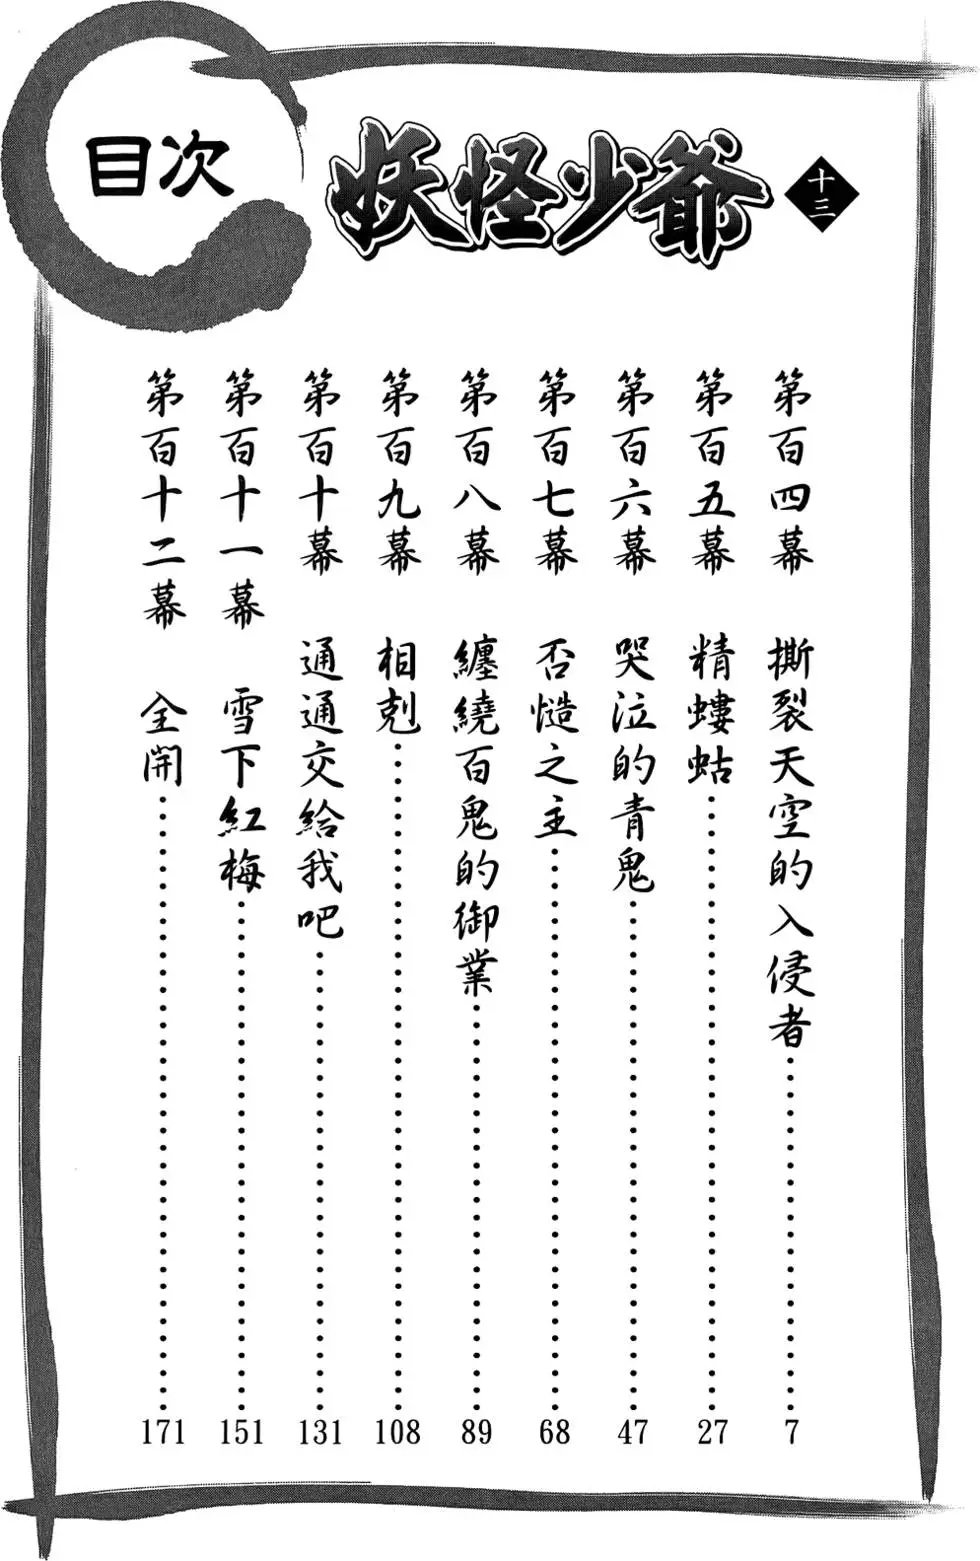 目次
妖怪少爺
十三
第百四幕 撕裂天空的入侵者 7
第百五幕 精螻蛄 27
第百六幕 哭泣的青鬼 47
第百七幕 否慥之主 68
第百八幕 纏繞百鬼的御業 89
第百九幕 相剋 108
第百十幕 通通交給我吧 131
第百十一幕 雪下紅梅 151
第百十二幕 全開 171